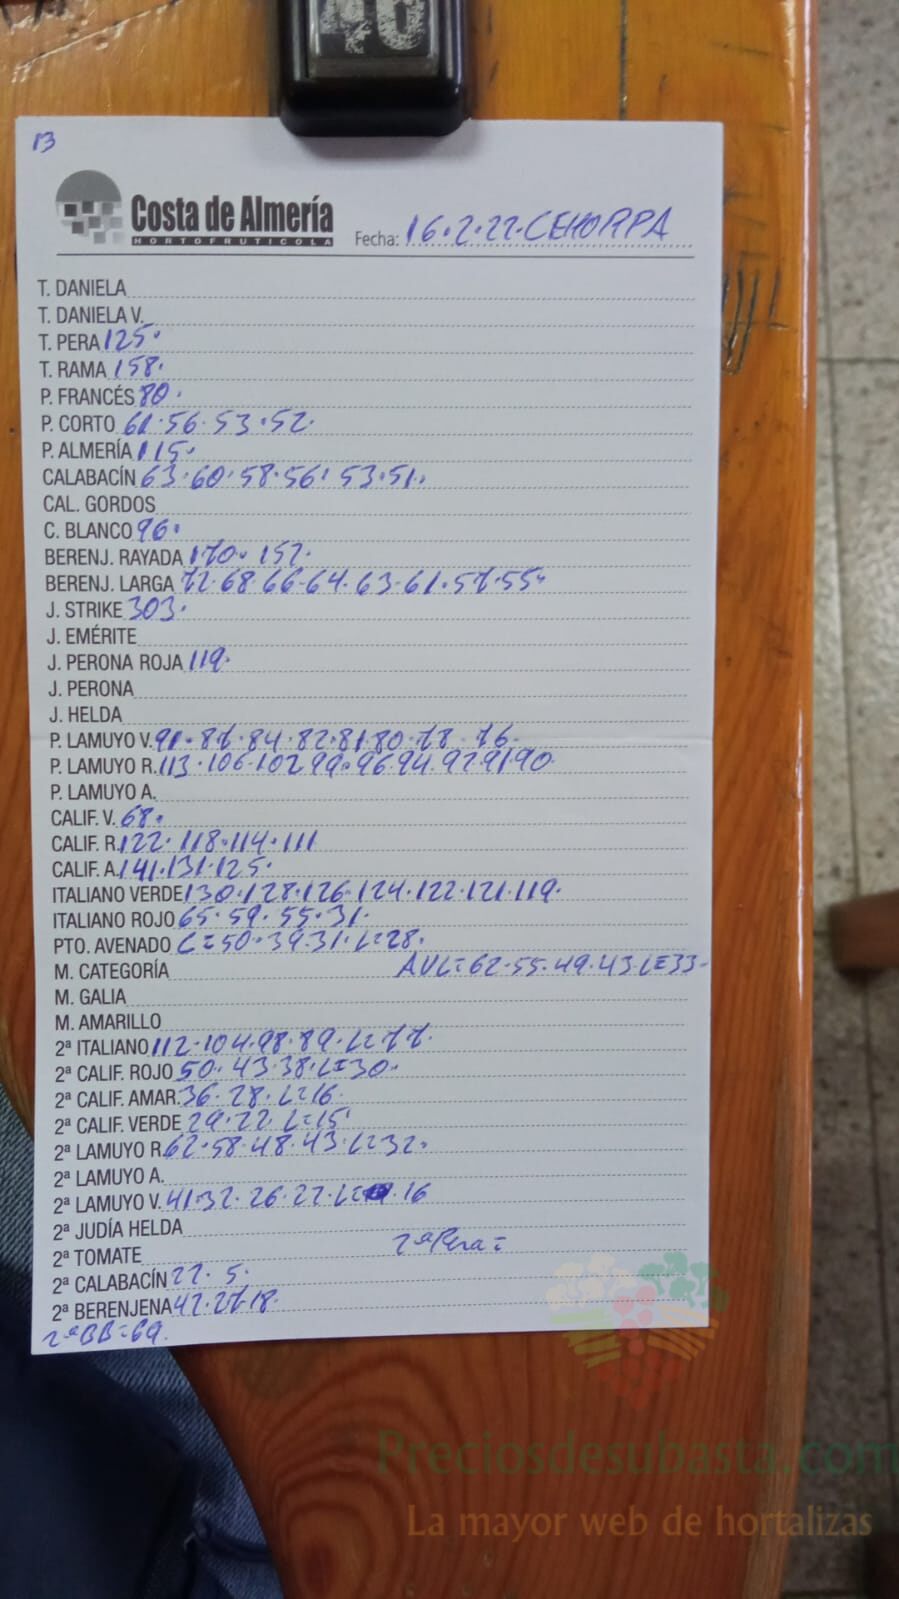 13
Costa de Almería
HORTOFRUTICOLA
Fecha: 16.2.22. CEHORPA
T. DANIELA
T. DANIELA V.
T. PERA 125.
T. RAMA 158.
P. FRANCÉS 80.
P. CORTO 61.56.53.52.
P. ALMERÍA 115.
CALABACÍN 63.60.58.56.53.51.
CAL. GORDOS
C. BLANCO 96.
BERENJ. RAYADA 170.152.
BERENJ. LARGA 72.68.66.64.63.61.57.55.
J. STRIKE 303.
J. EMÉRITE
J. PERONA ROJA 119.
J. PERONA
J. HELDA
P. LAMUYO V. 91.87.84.82.81.80.78.76.
P. LAMUYO R. 113.106.102.99.96.94.92.91.90.
P. LAMUYO A.
CALIF. V. 68.
CALIF. R. 122.118.114.111
CALIF. A. 141.131.125.
ITALIANO VERDE 130.128.126.124.122.121.119.
ITALIANO ROJO 65.59.55.31.
PTO. AVENADO C=50.39.31.L=28.
M. CATEGORÍA AVL=62.55.49.43.L=33.
M. GALIA
M. AMARILLO
2ª ITALIANO 112.104.98.89.L=77.
2ª CALIF. ROJO 50.43.38.L=30.
2ª CALIF. AMAR. 36.28.L=16.
2ª CALIF. VERDE 29.22.L=15
2ª LAMUYO R. 62.58.48.43.L=32.
2ª LAMUYO A.
2ª LAMUYO V. 41.32.26.22.L= 16
2ª JUDÍA HELDA
2ª TOMATE 2ª Pera=
2ª CALABACÍN 22.5.
2ª BERENJENA 42.27.18.
2ª BB=69.
Preciosdesubasta.com
La mayor web de hortalizas